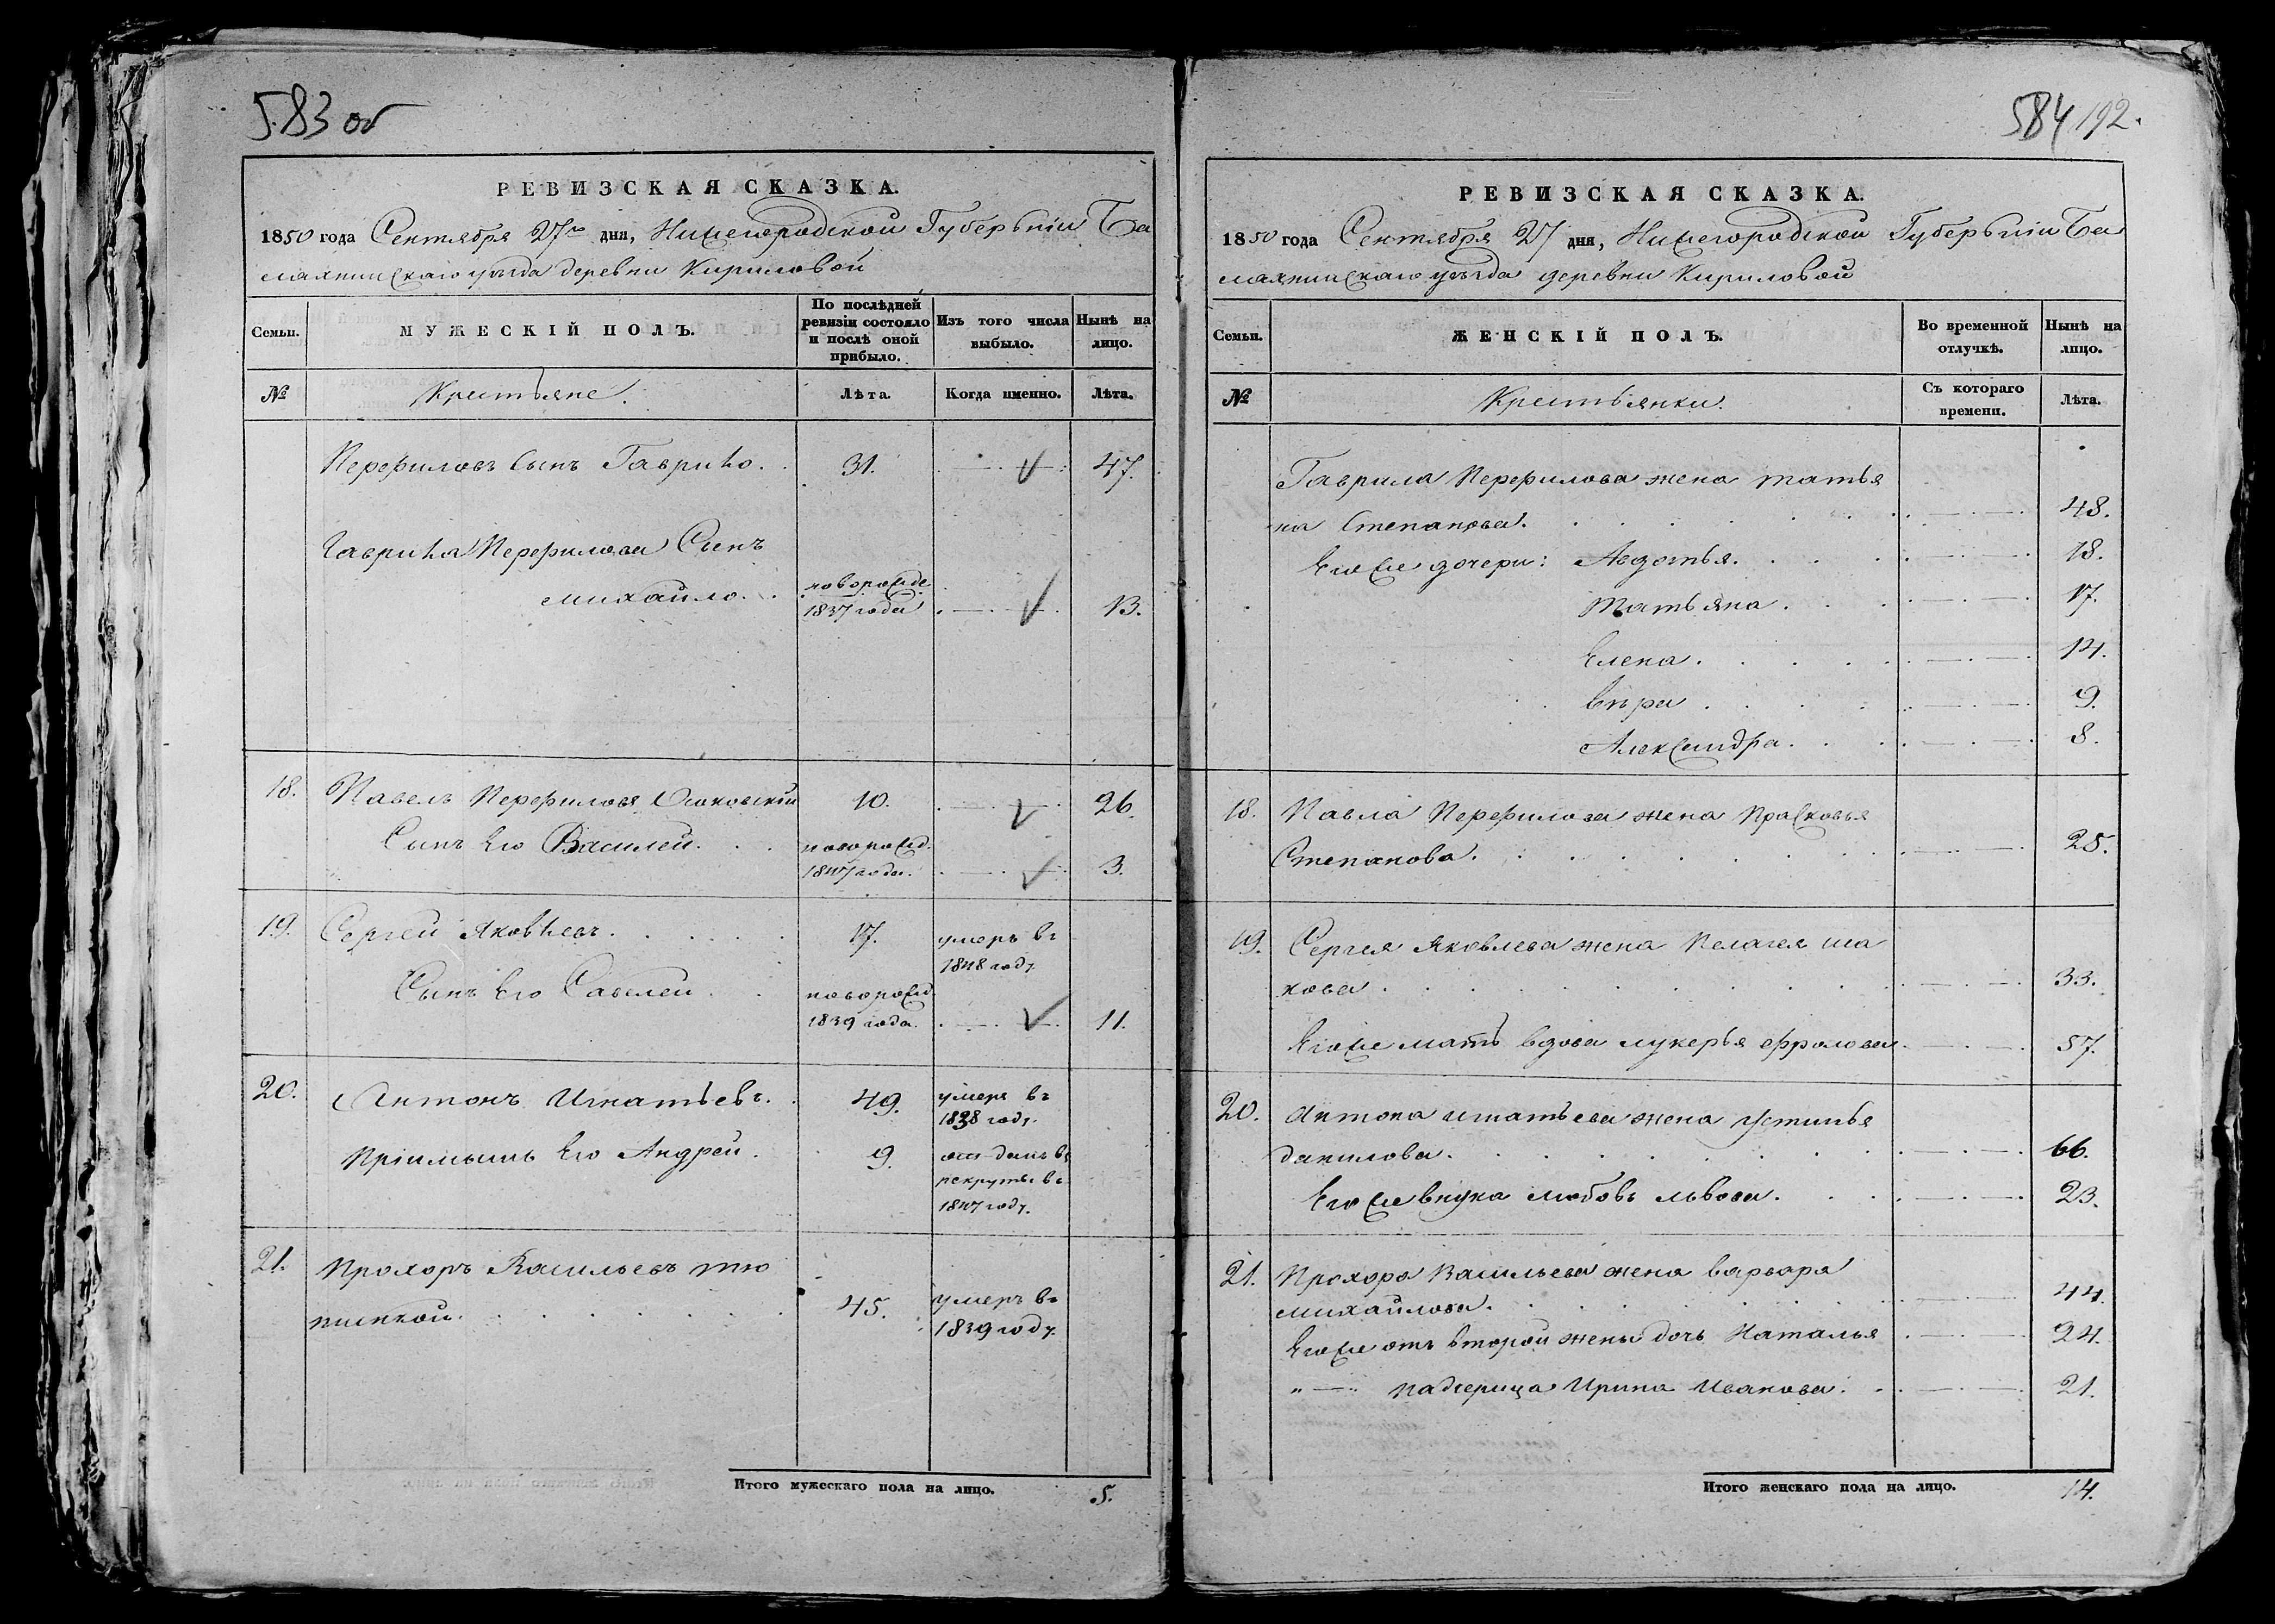 583 об
РЕВИЗСКАЯ СКАЗКА.
1850 года Сентября 27го дня, Нижегородской Губерьніи Ба
лахнинскаго уѣзда деревни Кириловой
Семьи.
МУЖЕСКІЙ ПОЛЪ.
По послѣдней ревизіи состояло и послѣ оной прибыло.
Изъ того числа выбыло.
Нынѣ на лицо.
№
Крестьяне.
Лѣта.
Когда именно.
Лѣта.
Перфиловъ Сынъ Гаврило. 31. 47.
Гаврила Перфилова Сынъ
Михайло. новорожде 1837 года 13.
18. Павелъ Перфиловъ 10. 26.
Сынъ Его Василей. новорожд. 1847 года. 3.
19. Сергей Яковлевъ. 17. умеръ въ 1848 году.
Сынъ Его Савелей новорожд. 1839 года. 11.
20. Антонъ Игнатьевъ. 49. умеръ въ 1838 году.
Пріимышъ Его Андрей. 9. отданъ въ рекруты въ 1847 году.
21. Прохоръ Васильевъ тю
пинкой. 45. умеръ въ 1839 году.
Итого мужескаго пола на лицо. 5.
584 192.
РЕВИЗСКАЯ СКАЗКА.
1850 года Сентября 27 дня, Нижегородской Губерьніи Ба
лахнинскаго уѣзда деревни Кириловой
Семьи.
ЖЕНСКІЙ ПОЛЪ.
Во временной отлучкѣ.
Нынѣ на лицо.
№
Крестьянки.
Съ котораго времени.
Лѣта.
Гаврила Перфилова жена татья
на Степанова. 48.
Егоже дочери: Авдотья. 18.
Татьяна. 17.
Елена. 14.
Вѣра 9.
Александра. 8.
18. Павла Перфилова жена Прасковья
Степанова. 25.
19. Сергея Яковлева жена Пелагея иса
кова 33.
Егоже мать вдова лукерья ефролова 57.
20. Антона игнатьева жена Устинья
данилова. 66.
Егоже внука любовь львова. 23.
21. Прохора Васильева жена варвара
михайлова. 44.
Егоже отъ второй жены дочь Наталья 24.
"—" падчерица Ирина Иванова. 21.
Итого женскаго пола на лицо. 14.